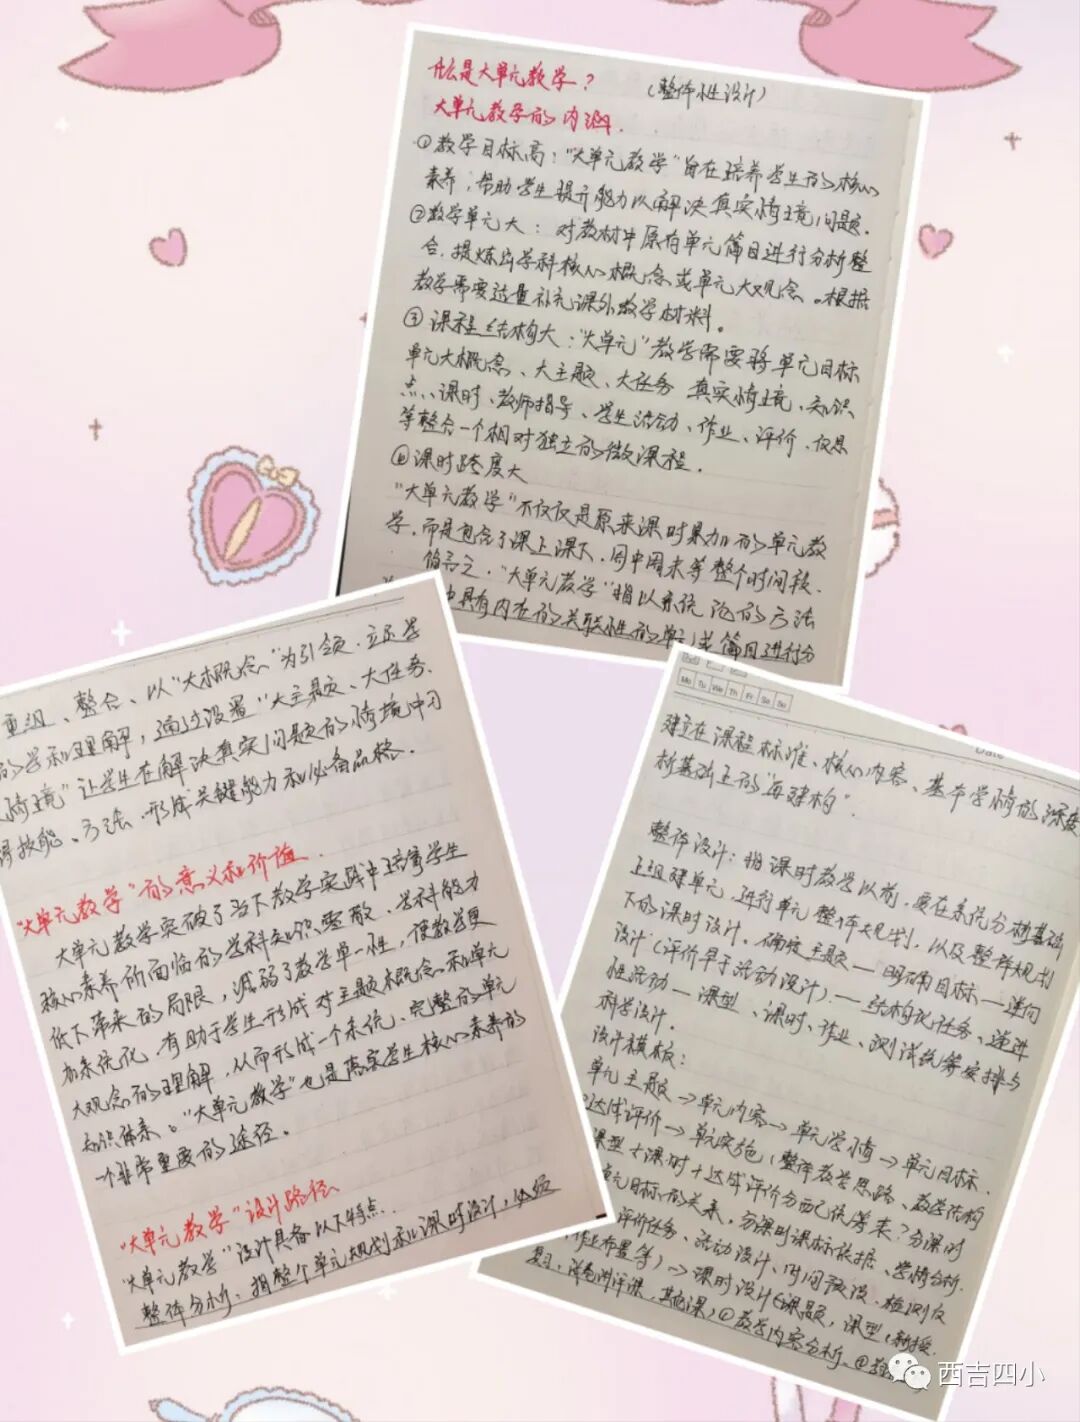 什么是大单元教学？ （整体性设计）
大单元教学的内涵.
①教学目标高："大单元教学"旨在培养学生的核心
素养，帮助学生提升能力以解决真实情境问题.
②教学单元大：对教材中原有单元篇目进行分析整
合，提炼出学科核心概念或单元大观念。根据
教学需要适量补充课外教学材料。
③课程结构大："大单元"教学需要将单元目标
单元大概念、大主题、大任务 真实情境、知识
点、课时、教师指导、学生活动、作业、评价、反思
等整合一个相对独立的微课程.
④课时跨度大
"大单元教学"不仅仅是原来课时累加的单元教
学，而是包含了课上课下，周中周末等整个时间段.
"大单元教学"指以系统论的方法
中具有内在的关联性的单元或篇目进行分
重组、整合、以"大概念"为引领，立足学
的学和理解，通过设置"大主题、大任务、
情境"让学生在解决真实问题的情境中习
得技能、方法、形成关键能力和必备品格.
"大单元教学"的意义和价值.
大单元教学突破了当下教学实践中培育学生
核心素养所面临的学科知识零散，学科能力
低下带来的局限，减弱了教学单一性，使教学更
加系统化，有助于学生形成对主题大概念和单元
大观念的理解，从而形成一个系统、完整的单元
知识体系。"大单元教学"也是落实学生核心素养的
一个非常重要的途径。
"大单元教学"设计路径
"大单元教学"设计具备以下特点.
整体分析：指整个单元规划和课时设计，体现
Mo Tu We Th Fr Sa Su
Date
建立在课程标准、核心内容、基本学情的深度
析基础上的"再建构".
整体设计：指课时教学以前，要在系统分析基础
上组建单元，进行单元整体规划，以及整体规划
下的课时设计。确定主题—明确目标—逆向
设计（评价早于活动设计）—结构化任务、递进
性活动—课型、课时、作业、测试等安排与
科学设计.
设计模板：
单元主题→单元内容→单元学情→单元目标.
达成评价→单元实施（整体教学思路、教学结构
课型+课时+达成评价分配依据等来？分课时
单元目标的关系，分课时课标依据、学情分析.
评价任务、活动设计、时间预设、检测反
作业布置等）→课时设计（课题，课型（新授.
复习，试卷讲评课，其他课）①教学内容分析、②
西吉四小